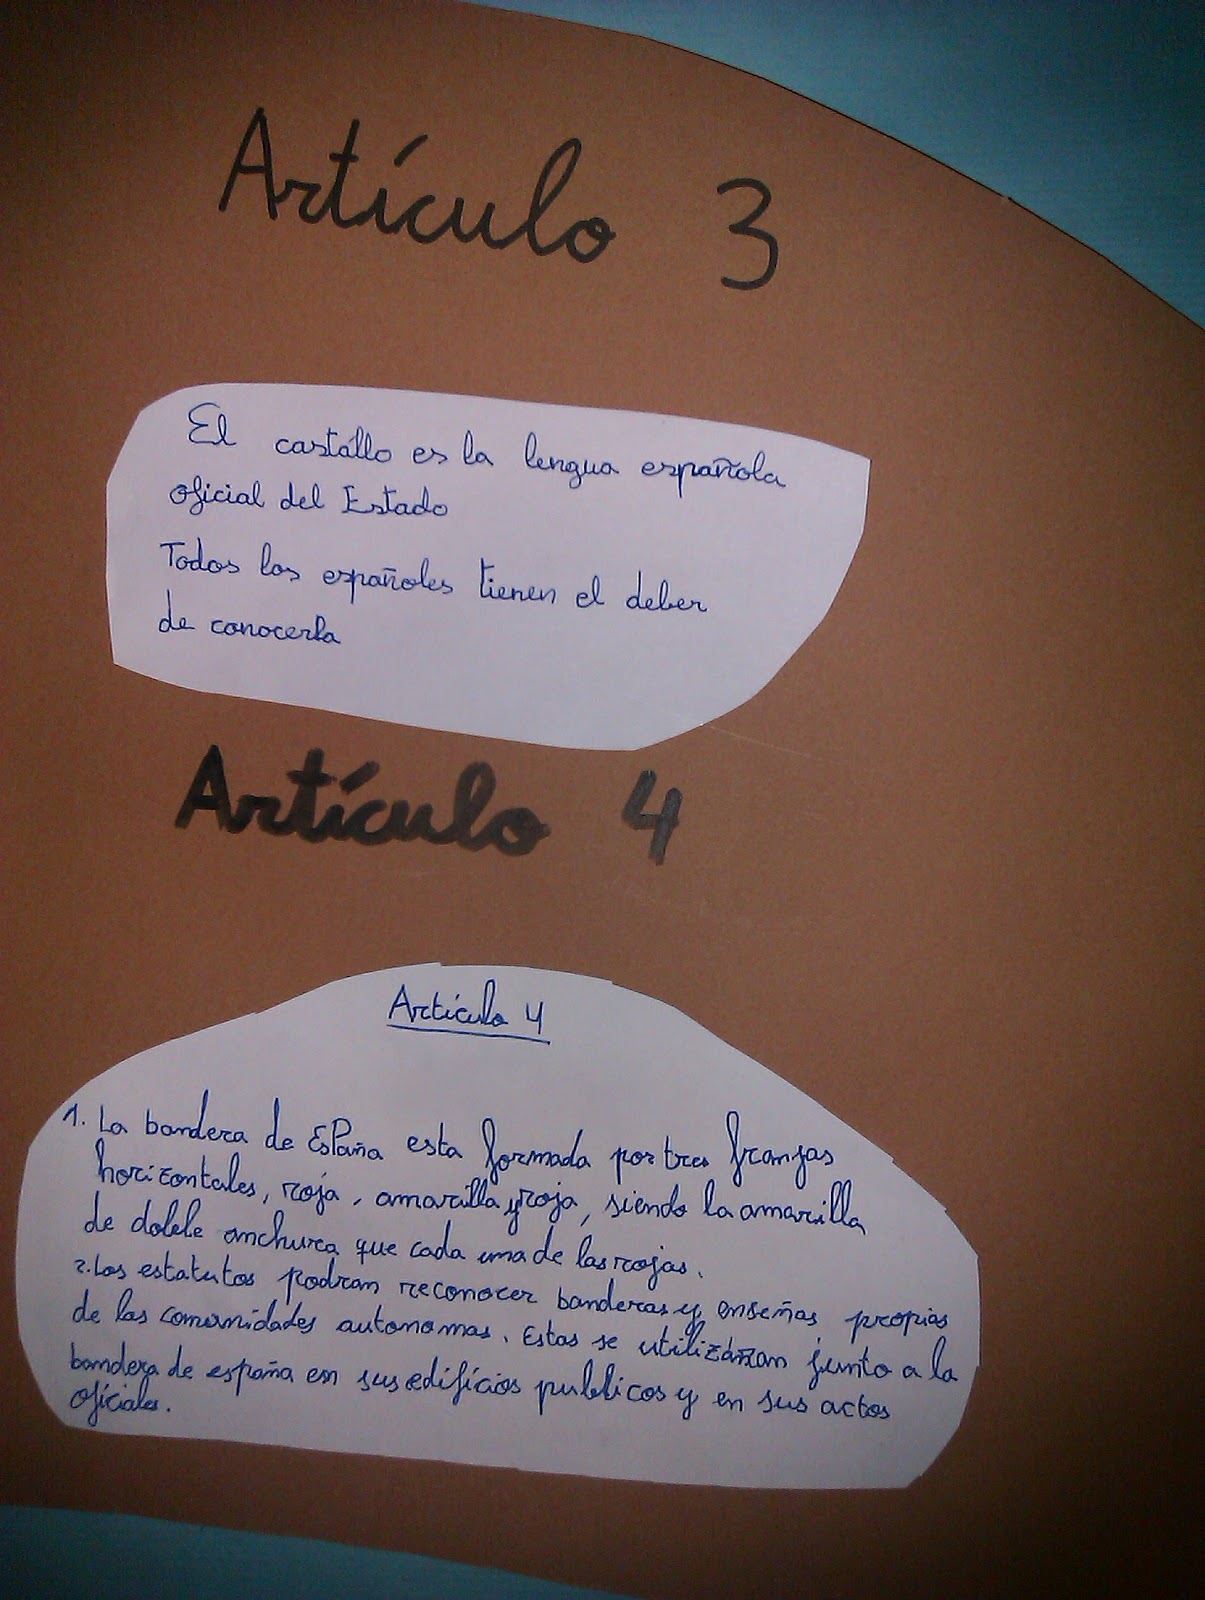 Artículo 3
El castallo es la lengua española
oficial del Estado
Todos los españoles tienen el deber
de conocerla
Artículo 4
Artículo 4
1. La bandera de España esta formada por tres franjas
horizontales, roja, amarilla y roja, siendo la amarilla
de doble anchura que cada una de las rojas.
2. Los estatutos podran reconocer banderas y enseñas propias
de las comunidades autonomas. Estas se utilizáran junto a la
bandera de españa en sus edificios publicos y en sus actos
oficiales.